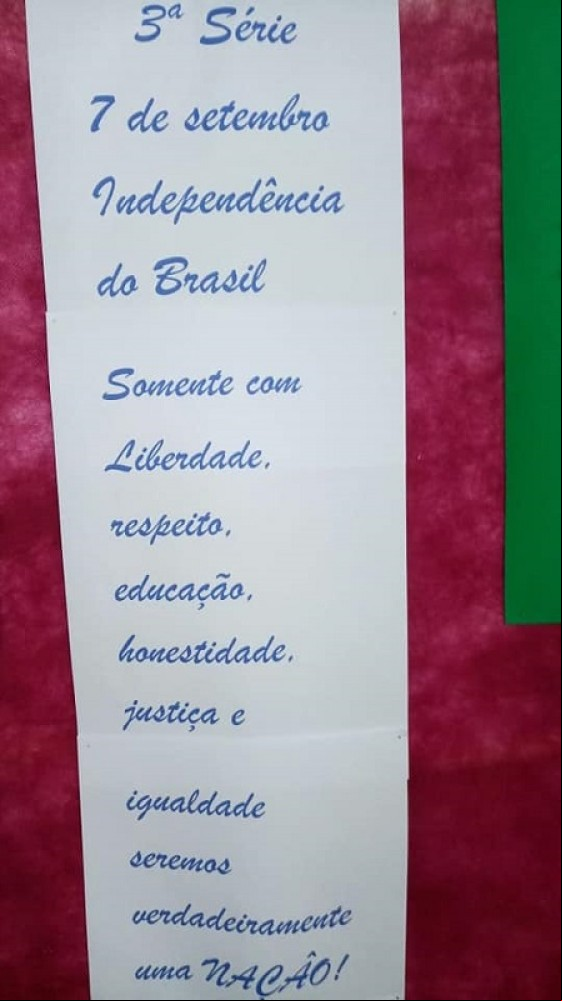 3ª Série
7 de setembro
Independência
do Brasil
Somente com
Liberdade,
respeito,
educação,
honestidade,
justiça e
igualdade
seremos
verdadeiramente
uma NAÇÂO!